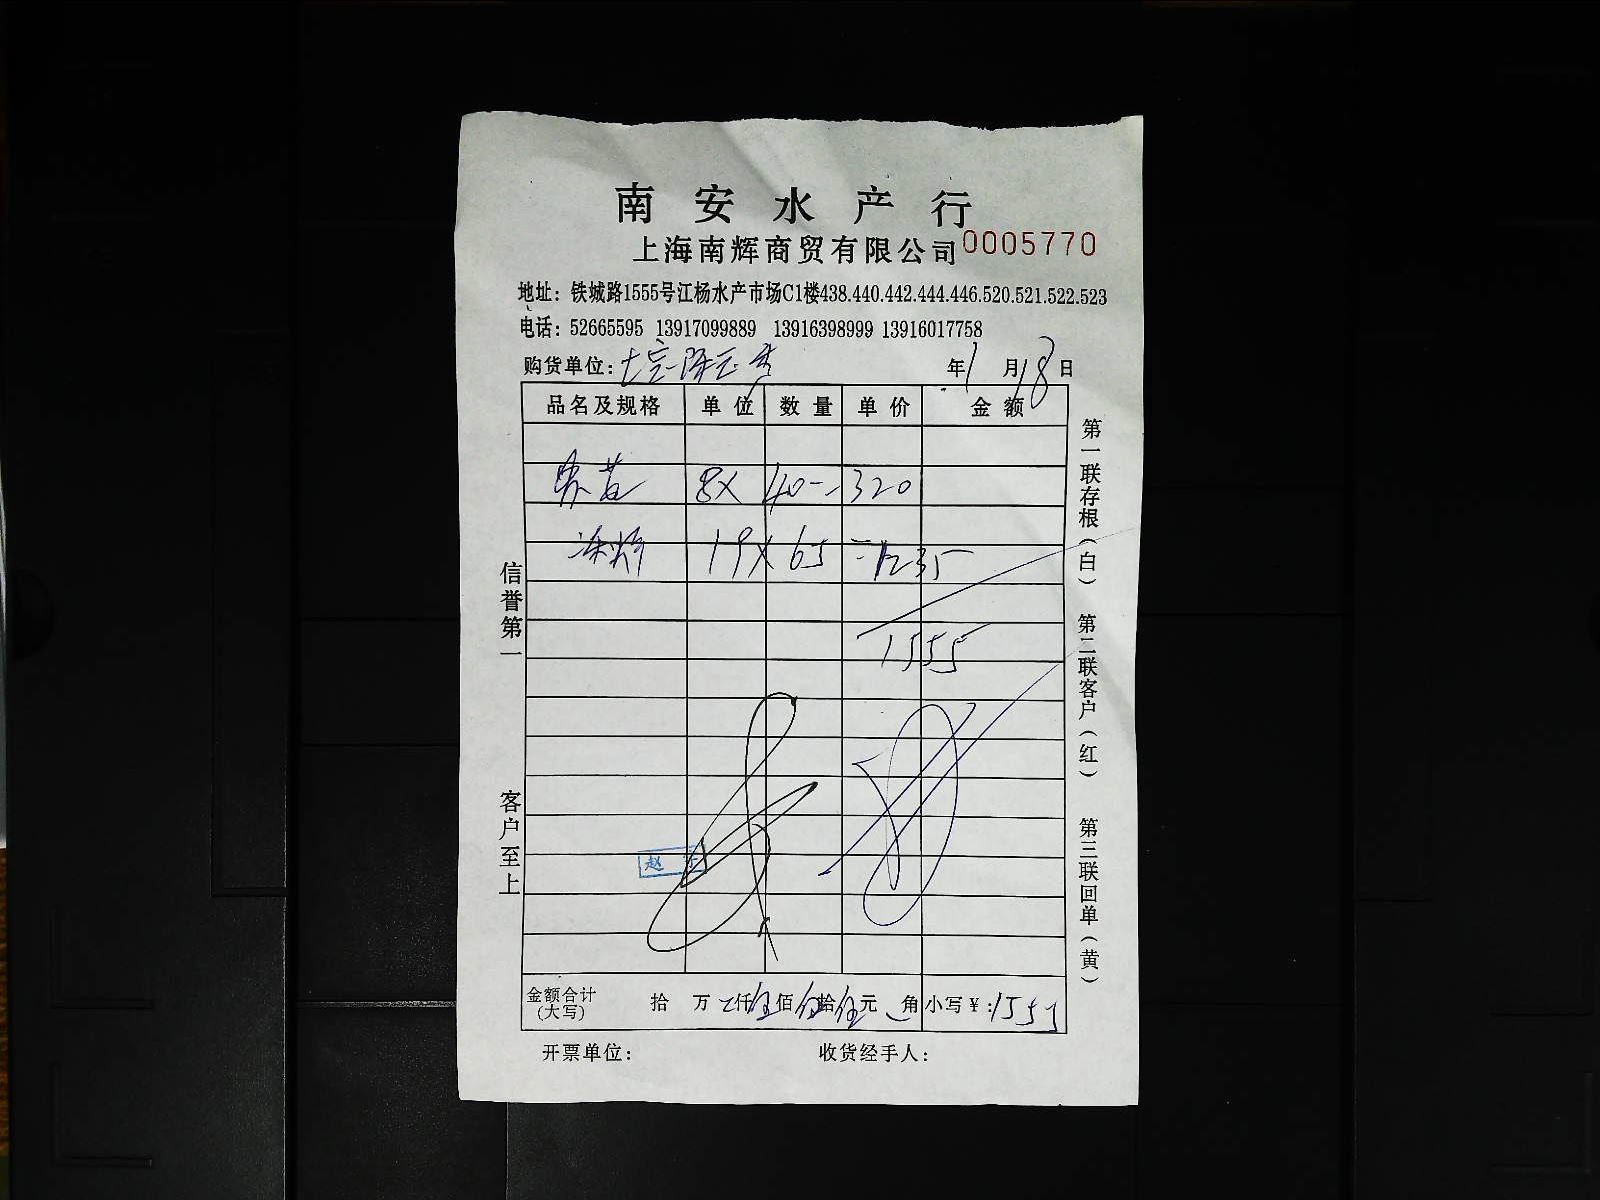 南安水产行
上海南辉商贸有限公司 0005770
地址：铁城路1555号江杨水产市场C1楼438.440.442.444.446.520.521.522.523
电话：52665595 13917099889 13916398999 13916017758
购货单位： 年1月18日
品名及规格 单位 数量 单价 金额
8X 40-320
19X 65=1235
1555
赵
金额合计（大写） 拾 万 仟伍佰伍拾伍元 角 小写￥：1555
开票单位： 收货经手人：
信誉第一
客户至上
第一联存根（白） 第二联客户（红） 第三联回单（黄）